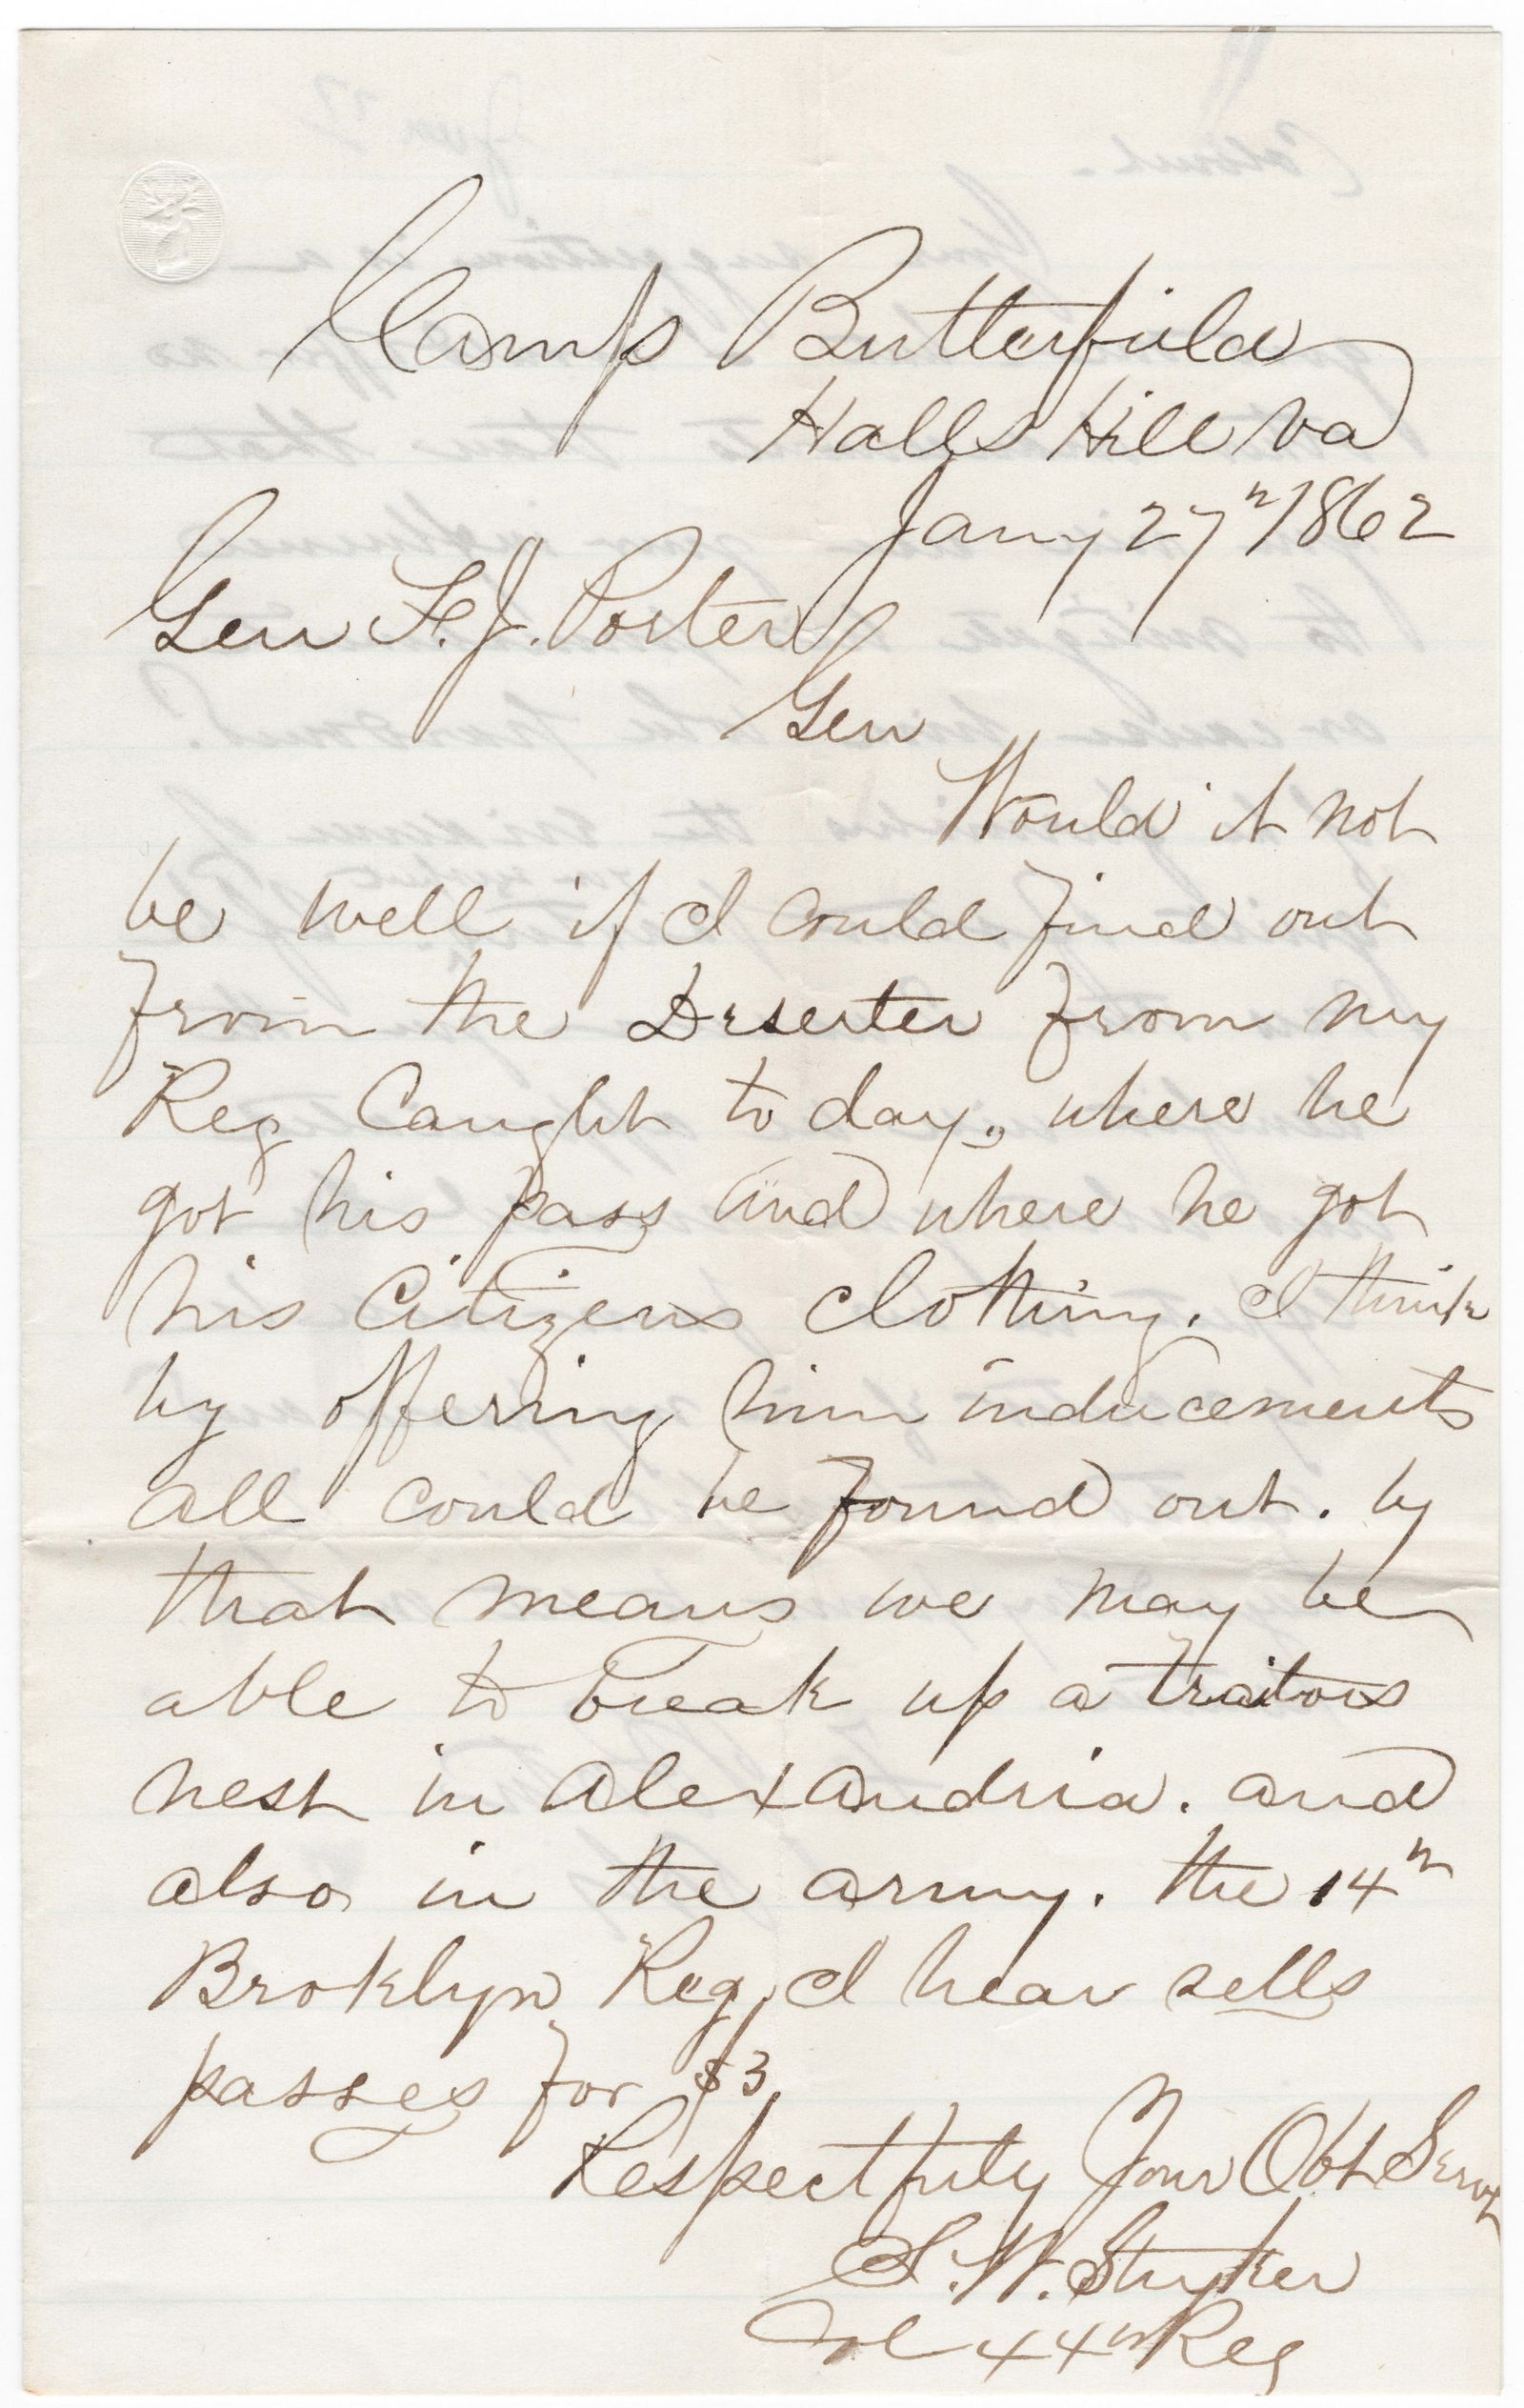 Camp Butterfield
Halls Hill Va
Jany 27th 1862
Gen F. J. Porter
Gen
Would it not
be well if I could find out
from the Deserter from my
Reg Caught to day, where he
got his pass and where he got
his Citizens clothing. I think
by offering him inducements
all could be found out. by
that means we may be
able to break up a traitors
nest in Alexandria. and
also in the army. the 14th
Broklyn Reg, I hear sells
passes for $3.
Respectfuly Your Obt Servt
S. W. Stryker
Col 44th Reg